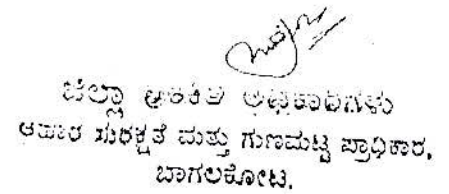 ಜಿಲ್ಲಾ ಅಂಕಿತ ಅಧಿಕಾರಿಗಳು
ಆಹಾರ ಸುರಕ್ಷತೆ ಮತ್ತು ಗುಣಮಟ್ಟ ಪ್ರಾಧಿಕಾರ,
ಬಾಗಲಕೋಟ.